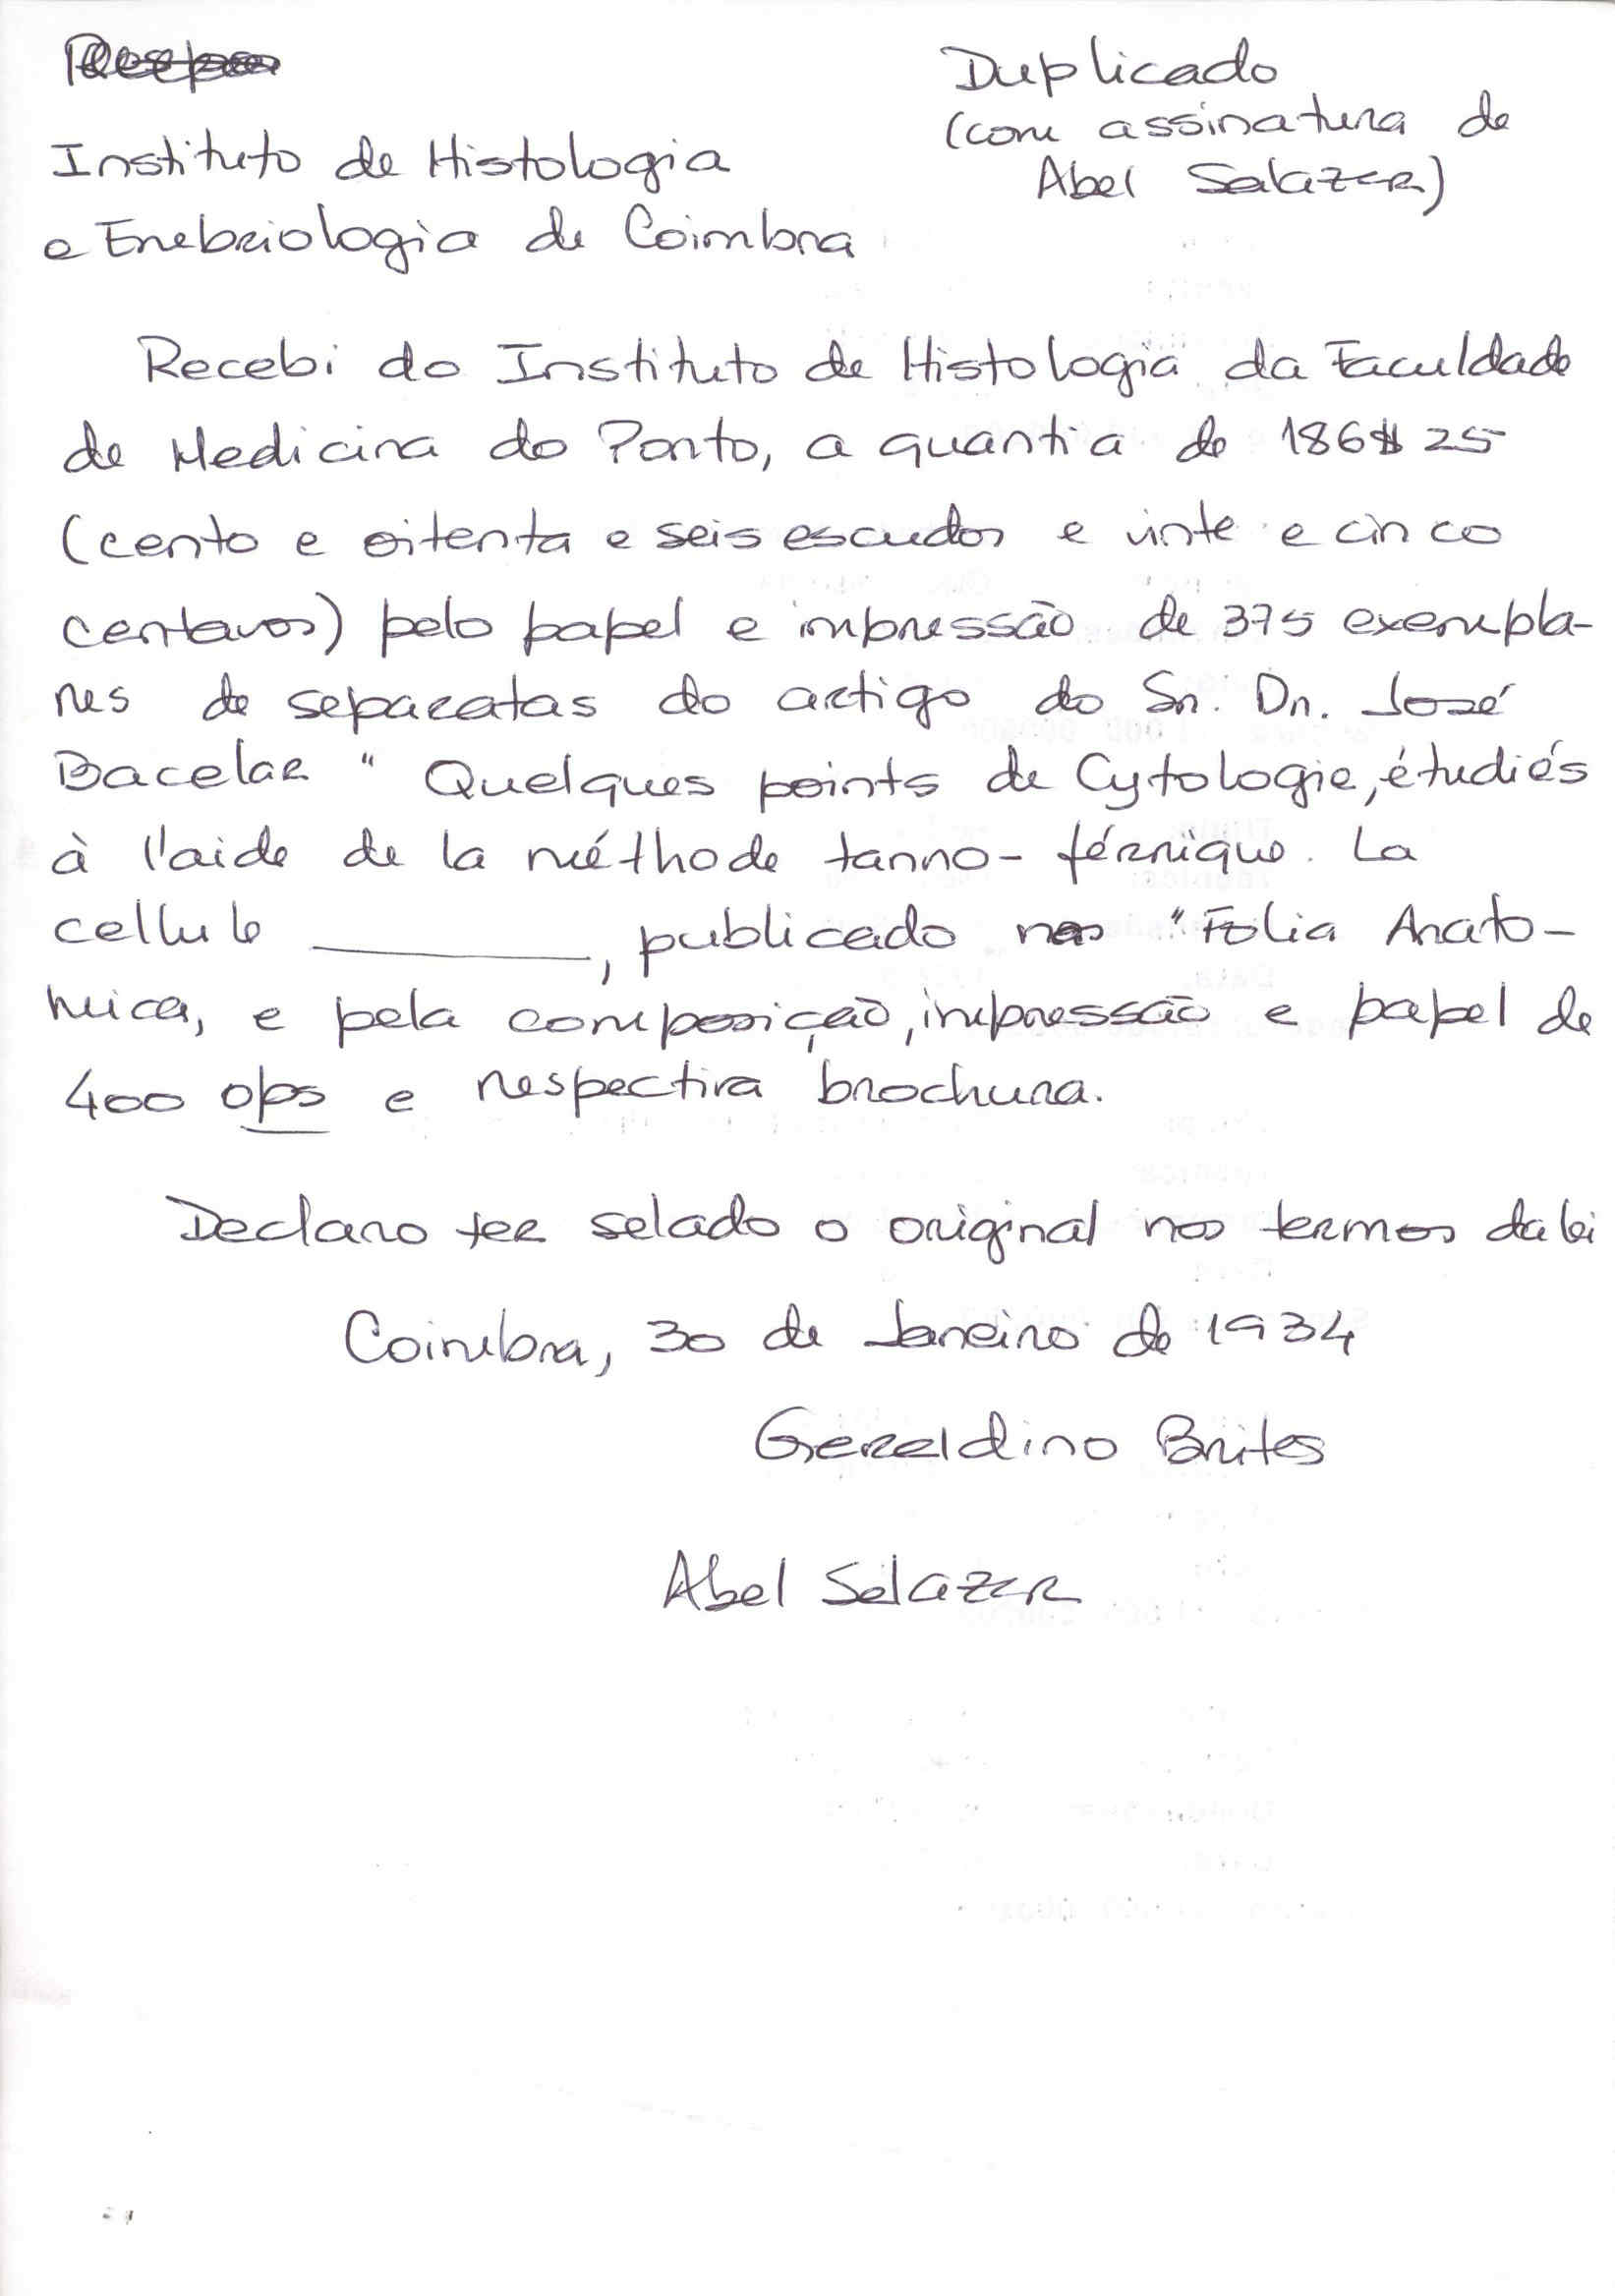 Duplicado
(com assinatura de
Abel Salazar)
Instituto de Histologia
e Embriologia de Coimbra
Recebi do Instituto de Histologia da Faculdade
de Medicina do Porto, a quantia de 186$25
(cento e oitenta e seis escudos e vinte e cinco
centavos) pelo papel e impressão de 375 exempla-
res de separatas do artigo do Sr. Dr. José
Bacelar " Quelques points de Cytologie, étudiés
à l'aide de la méthode tanno-férrique. La
cellule ________, publicado nas "Folia Anato-
mica, e pela composição, impressão e papel de
400 ops e respectiva brochura.
Declaro ter selado o original nos termos da lei
Coimbra, 30 de Janeiro de 1934
Geraldino Brites
Abel Salazar